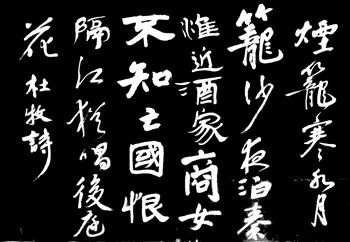 煙籠寒水月
籠沙夜泊秦
淮近酒家商女
不知亡國恨
隔江猶唱後庭
花 杜牧詩